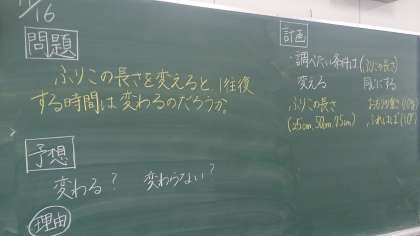 11/16
問題
ふりこの長さを変えると、1往復
する時間は変わるのだろうか。
予想
変わる? 変わらない?
理由
計画
・調べたい条件は(ふりこの長さ)
変える 同じにする
ふりこの長さ おもりの重さ(10g)
(25cm, 50cm, 75cm) ふれはば(10°)